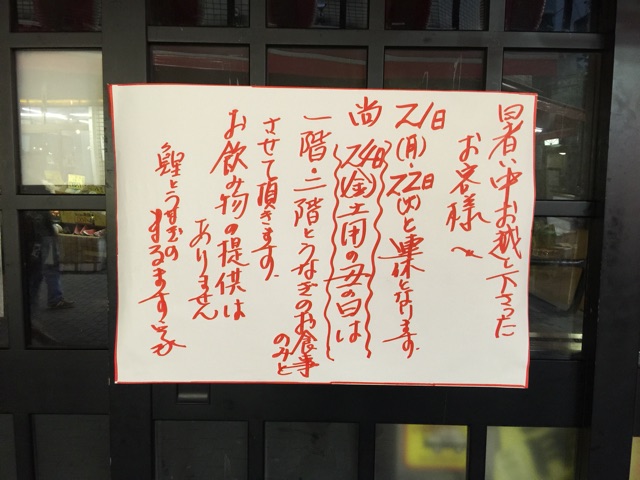 暑い中お越し下さった
お客様へ
21日(月)・22日(火)と連休となります。
尚 24日 土用の丑の日は
一階・二階とうなぎのお食事のみと
させて頂きます。
お飲み物の提供は
ありません
鯉とうなぎの
まるます家